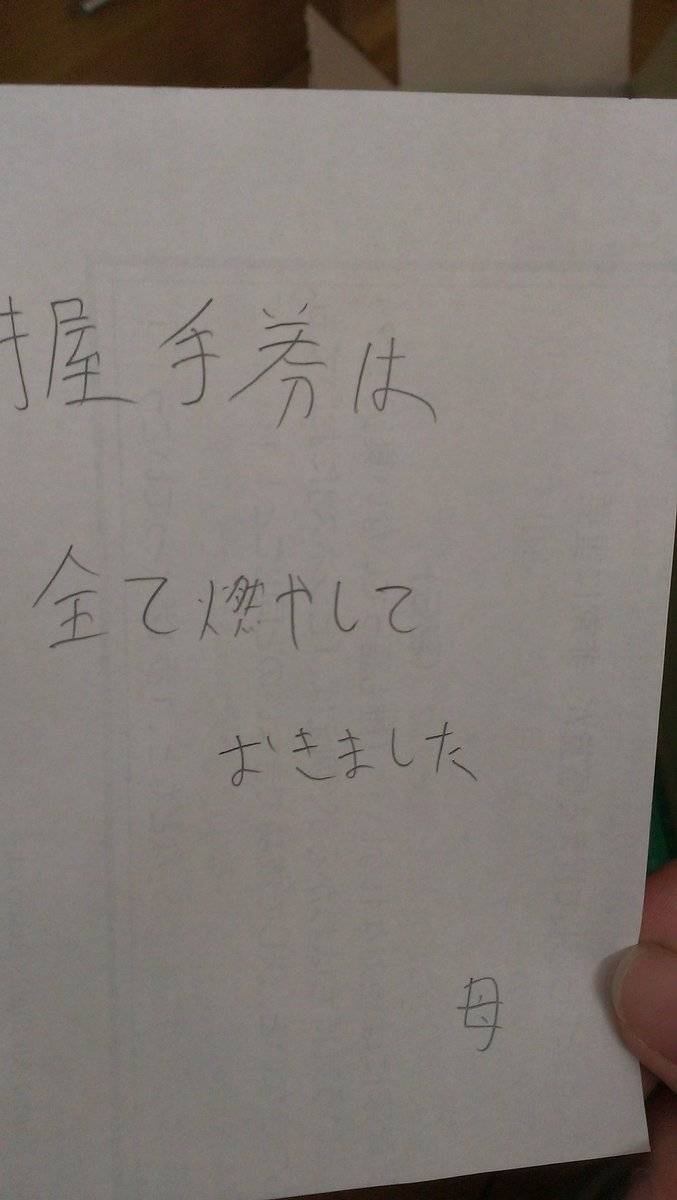 握手券は
全て燃やして
おきました
母